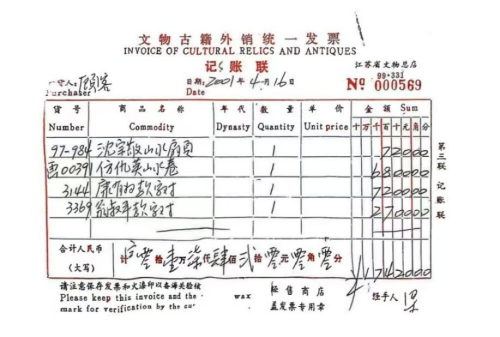 文物古籍外销统一发票
INVOICE OF CULTURAL RELICS AND ANTIQUES
记账联
江苏省文物总店
99•331
顾客
日期: 2001年4月16日
Purchaser Date
Nº 000569
货号 商品名称 年代 数量 单价 金额 Sum
Number Commodity Dynasty Quantity Unit price 十万千百十元角分
97-984 沈宗敬山水扇 1 72000
00391 仿仇英山水卷 1 680000
3144 康有为款字对 1 720000
3369 翁叔平款字对 1 270000
第三联 记账联
合计人民币
(大写)
计 零拾壹万柒仟肆佰贰拾零元零角零分 ¥1742000
请注意保存发票和火漆印以备海关验核
Please keep this invoice and the wax
mark for verification by the cu
经售商店
盖发票专用章
经手人 梁